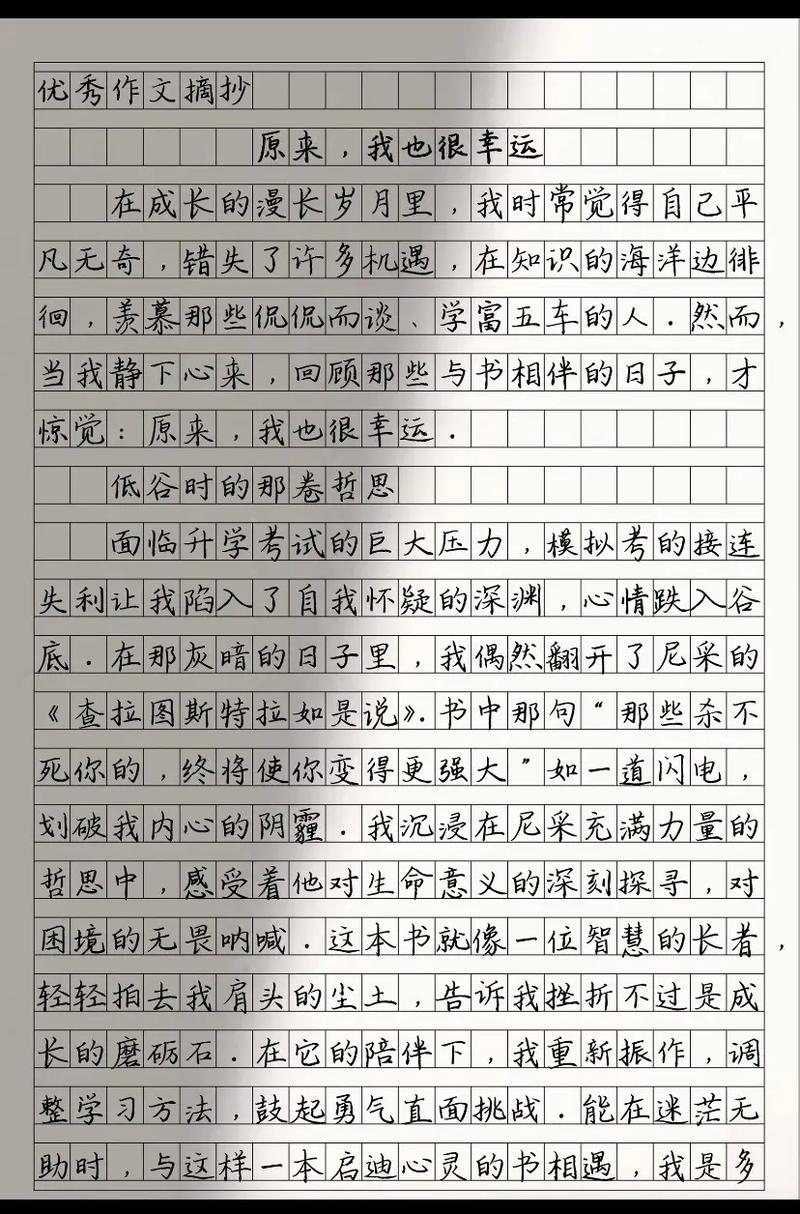 优秀作文摘抄
原来，我也很幸运
在成长的漫长岁月里，我时常觉得自己平
凡无奇，错失了许多机遇，在知识的海洋边徘
徊，羡慕那些侃侃而谈、学富五车的人．然而，
当我静下心来，回顾那些与书相伴的日子，才
惊觉：原来，我也很幸运．
低谷时的那卷哲思
面临升学考试的巨大压力，模拟考的接连
失利让我陷入了自我怀疑的深渊，心情跌入谷
底．在那灰暗的日子里，我偶然翻开了尼采的
《查拉图斯特拉如是说》．书中那句“那些杀不
死你的，终将使你变得更强大”如一道闪电，
划破我内心的阴霾．我沉浸在尼采充满力量的
哲思中，感受着他对生命意义的深刻探寻，对
困境的无畏呐喊．这本书就像一位智慧的长者，
轻轻拍去我肩头的尘土，告诉我挫折不过是成
长的磨砺石．在它的陪伴下，我重新振作，调
整学习方法，鼓起勇气直面挑战．能在迷茫无
助时，与这样一本启迪心灵的书相遇，我是多